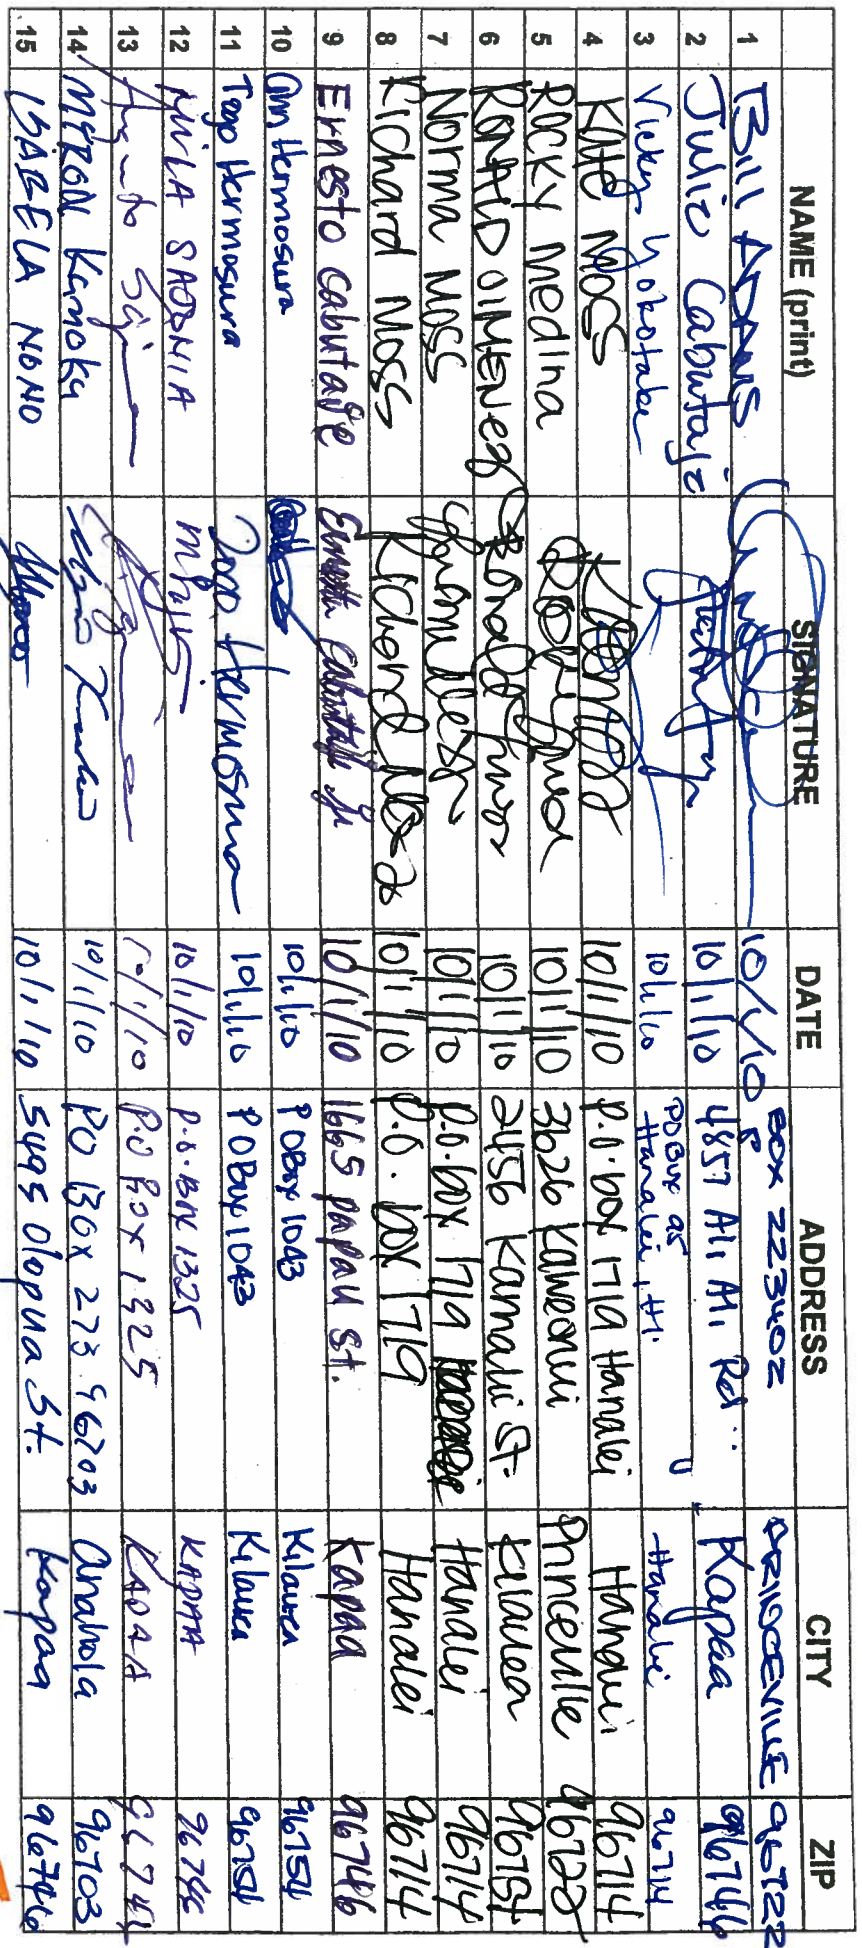 NAME (print) SIGNATURE DATE ADDRESS CITY ZIP
1 Bill ADAMS 10/1/10 BOX 223402 PRINCEVILLE 96722
2 Julie Cabutaje 10/1/10 4857 Ali Ali Rd. Kapaa 96746
3 Vicky Yokotake 10/1/10 PO Box 95 Hanalei, HI. Hanalei 96714
4 Kate Moss 10/1/10 P.O. box 1719 Hanalei Hanalei 96714
5 ROCKY Medina 10/1/10 3626 Kaweonui Princeville 96722
6 RONALD JIMENEZ 10/1/10 2456 Kamalii St. Kilauea 96754
7 Norma Moss 10/1/10 P.O. box 1719 Hanalei 96714
8 Richard Moss Richard Moss 10/1/10 P.O. box 1719 Hanalei 96714
9 Ernesto Cabutaje Ernesto Cabutaje Jr 10/1/10 1665 papau St. Kapaa 96746
10 Ann Hermosura 10/1/10 P O Box 1043 Kilauea 96754
11 Tego Hermosura Tego Hermosura 10/1/10 P O Box 1043 Kilauea 96754
12 10/1/10 P.O. BOX 1325 KAPAA 96746
13 10/1/10 P.O BOX 1325 KAPAA 96746
14 MYRON Kamoku 10/1/10 PO BOX 273 96703 Anahola 96703
15 ISABELA NONO 10/1/10 5495 Olopua St. Kapaa 96746